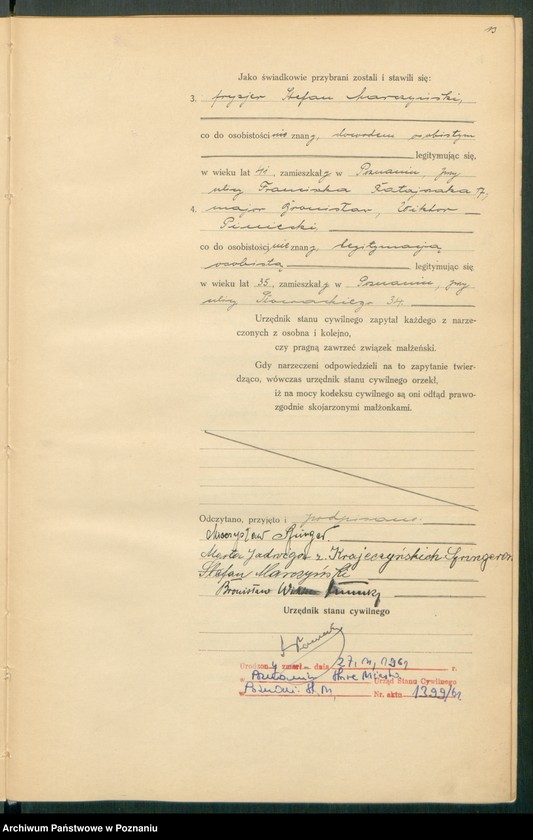 13
Jako świadkowie przybrani zostali i stawili się:
3. fryzjer Stefan Marczyński,
co do osobistości nie znany, dowodem osobistym
legitymując się,
w wieku lat 41, zamieszkały w Poznaniu, przy
ulicy Franciszka Ratajczaka 7,
4. major Bronisław, Wiktor
co do osobistości nie znany legitymacją
osobistą legitymując się
w wieku lat 35, zamieszkały w Poznaniu, przy
ulicy Słowackiego 34,
Urzędnik stanu cywilnego zapytał każdego z narze-
czonych z osobna i kolejno,
czy pragną zawrzeć związek małżeński.
Gdy narzeczeni odpowiedzieli na to zapytanie twier-
dząco, wówczas urzędnik stanu cywilnego orzekł,
iż na mocy kodeksu cywilnego są oni odtąd prawo-
zgodnie skojarzonymi małżonkami.
Odczytano, przyjęto i podpisano.
Mieczysław Springer.
Marta Jadwiga z Krajeczyńskich Springerowa
Stefan Marczyński
Bronisław
Urzędnik stanu cywilnego
zmarł dnia 1961 r.
w Poznaniu Stare Miasto Urząd Stanu Cywilnego
w Poznań St. M. Nr. aktu 1399/61
Archiwum Państwowe w Poznaniu